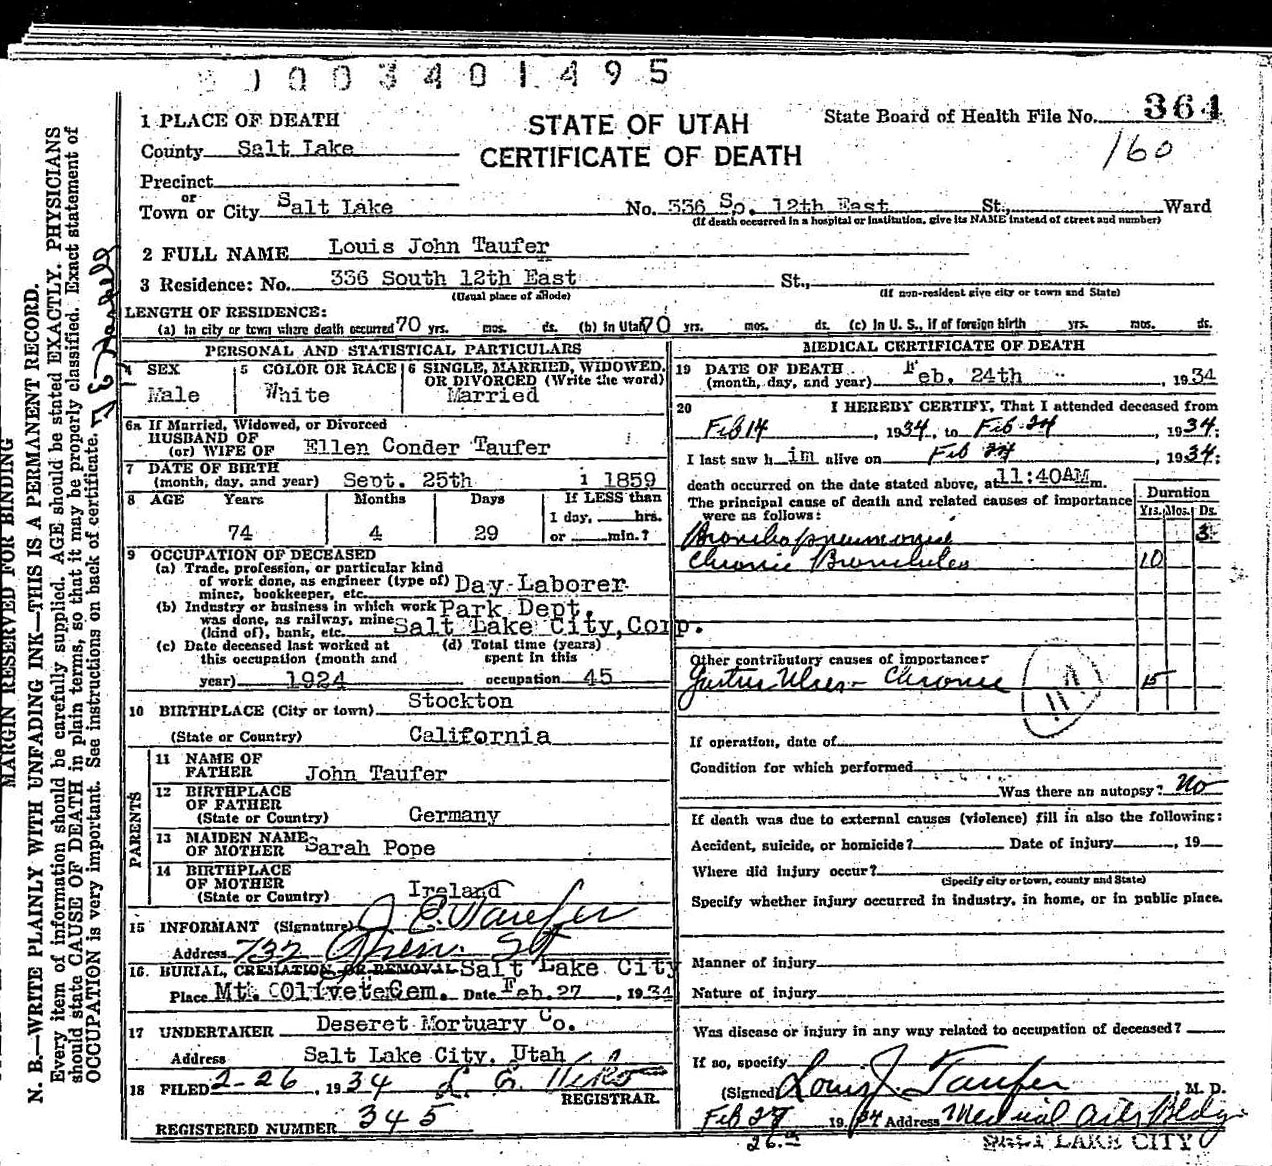 003401495
1 PLACE OF DEATH
STATE OF UTAH
CERTIFICATE OF DEATH
State Board of Health File No. 364
160
County Salt Lake
Precinct
or
Town or City Salt Lake No. 336 So. 12th East St., Ward
(If death occurred in a hospital or institution, give its NAME instead of street and number)
2 FULL NAME Louis John Taufer
3 Residence: No. 336 South 12th East St.,
(Usual place of abode) (If non-resident give city or town and State)
LENGTH OF RESIDENCE:
(a) In city or town where death occurred 70 yrs. mos. ds. (b) In Utah 70 yrs. mos. ds. (c) In U. S., if of foreign birth yrs. mos. ds.
PERSONAL AND STATISTICAL PARTICULARS
4 SEX
Male
5 COLOR OR RACE
White
6 SINGLE, MARRIED, WIDOWED,
OR DIVORCED (Write the word)
Married
6a If Married, Widowed, or Divorced
HUSBAND OF
(or) WIFE OF Ellen Conder Taufer
7 DATE OF BIRTH
(month, day, and year) Sept. 25th 1859
8 AGE Years Months Days If LESS than
1 day, hrs.
74 4 29 or min.?
9 OCCUPATION OF DECEASED
(a) Trade, profession, or particular kind
of work done, as engineer (type of)
miner, bookkeeper, etc. Day Laborer
(b) Industry or business in which work Park Dept.
was done, as railway, mine
(kind of), bank, etc. Salt Lake City, Corp.
(c) Date deceased last worked at
this occupation (month and
year) 1924
(d) Total time (years)
spent in this
occupation 45
10 BIRTHPLACE (City or town) Stockton
(State or Country) California
PARENTS
11 NAME OF
FATHER John Taufer
12 BIRTHPLACE
OF FATHER
(State or Country) Germany
13 MAIDEN NAME
OF MOTHER Sarah Pope
14 BIRTHPLACE
OF MOTHER
(State or Country) Ireland
15 INFORMANT (Signature) J E Taufer
Address 732 St
16. BURIAL, CREMATION OR REMOVAL Salt Lake City
Place Mt. Olivet Cem. Date Feb. 27, 1934
17 UNDERTAKER Deseret Mortuary Co.
Address Salt Lake City, Utah
18 FILED 2-26, 1934
REGISTRAR.
REGISTERED NUMBER 345
MEDICAL CERTIFICATE OF DEATH
19 DATE OF DEATH
(month, day, and year) Feb. 24th, 1934
20 I HEREBY CERTIFY, That I attended deceased from
Feb 14, 1934, to Feb 24, 1934;
I last saw h im alive on Feb 24, 1934;
death occurred on the date stated above, at 11:40AM m.
The principal cause of death and related causes of importance
were as follows:
Duration
Yrs. Mos. Ds.
Bronchopneumonia 3
Chronic Bronchitis 10
Other contributory causes of importance:
Gastric Ulcer - Chronic 15
If operation, date of
Condition for which performed
Was there an autopsy? No
If death was due to external causes (violence) fill in also the following:
Accident, suicide, or homicide? Date of injury , 19
Where did injury occur?
(Specify city or town, county and State)
Specify whether injury occurred in industry, in home, or in public place.
Manner of injury
Nature of injury
Was disease or injury in any way related to occupation of deceased?
If so, specify
(Signed) Louis J. Taufer, M. D.
Feb 27 1934 Address Medical Arts Bldg
26. SALT LAKE CITY
MARGIN RESERVED FOR BINDING
N. B.—WRITE PLAINLY WITH UNFADING INK—THIS IS A PERMANENT RECORD.
Every item of information should be carefully supplied. AGE should be stated EXACTLY. PHYSICIANS
should state CAUSE OF DEATH in plain terms, so that it may be properly classified. Exact statement of
OCCUPATION is very important. See instructions on back of certificate.